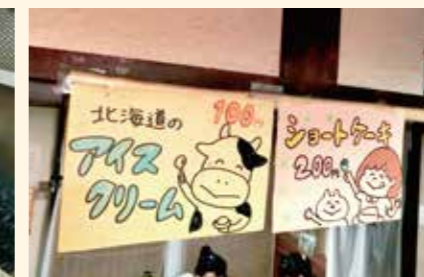 北海道の
100円
アイス
クリーム
ショートケーキ
200円